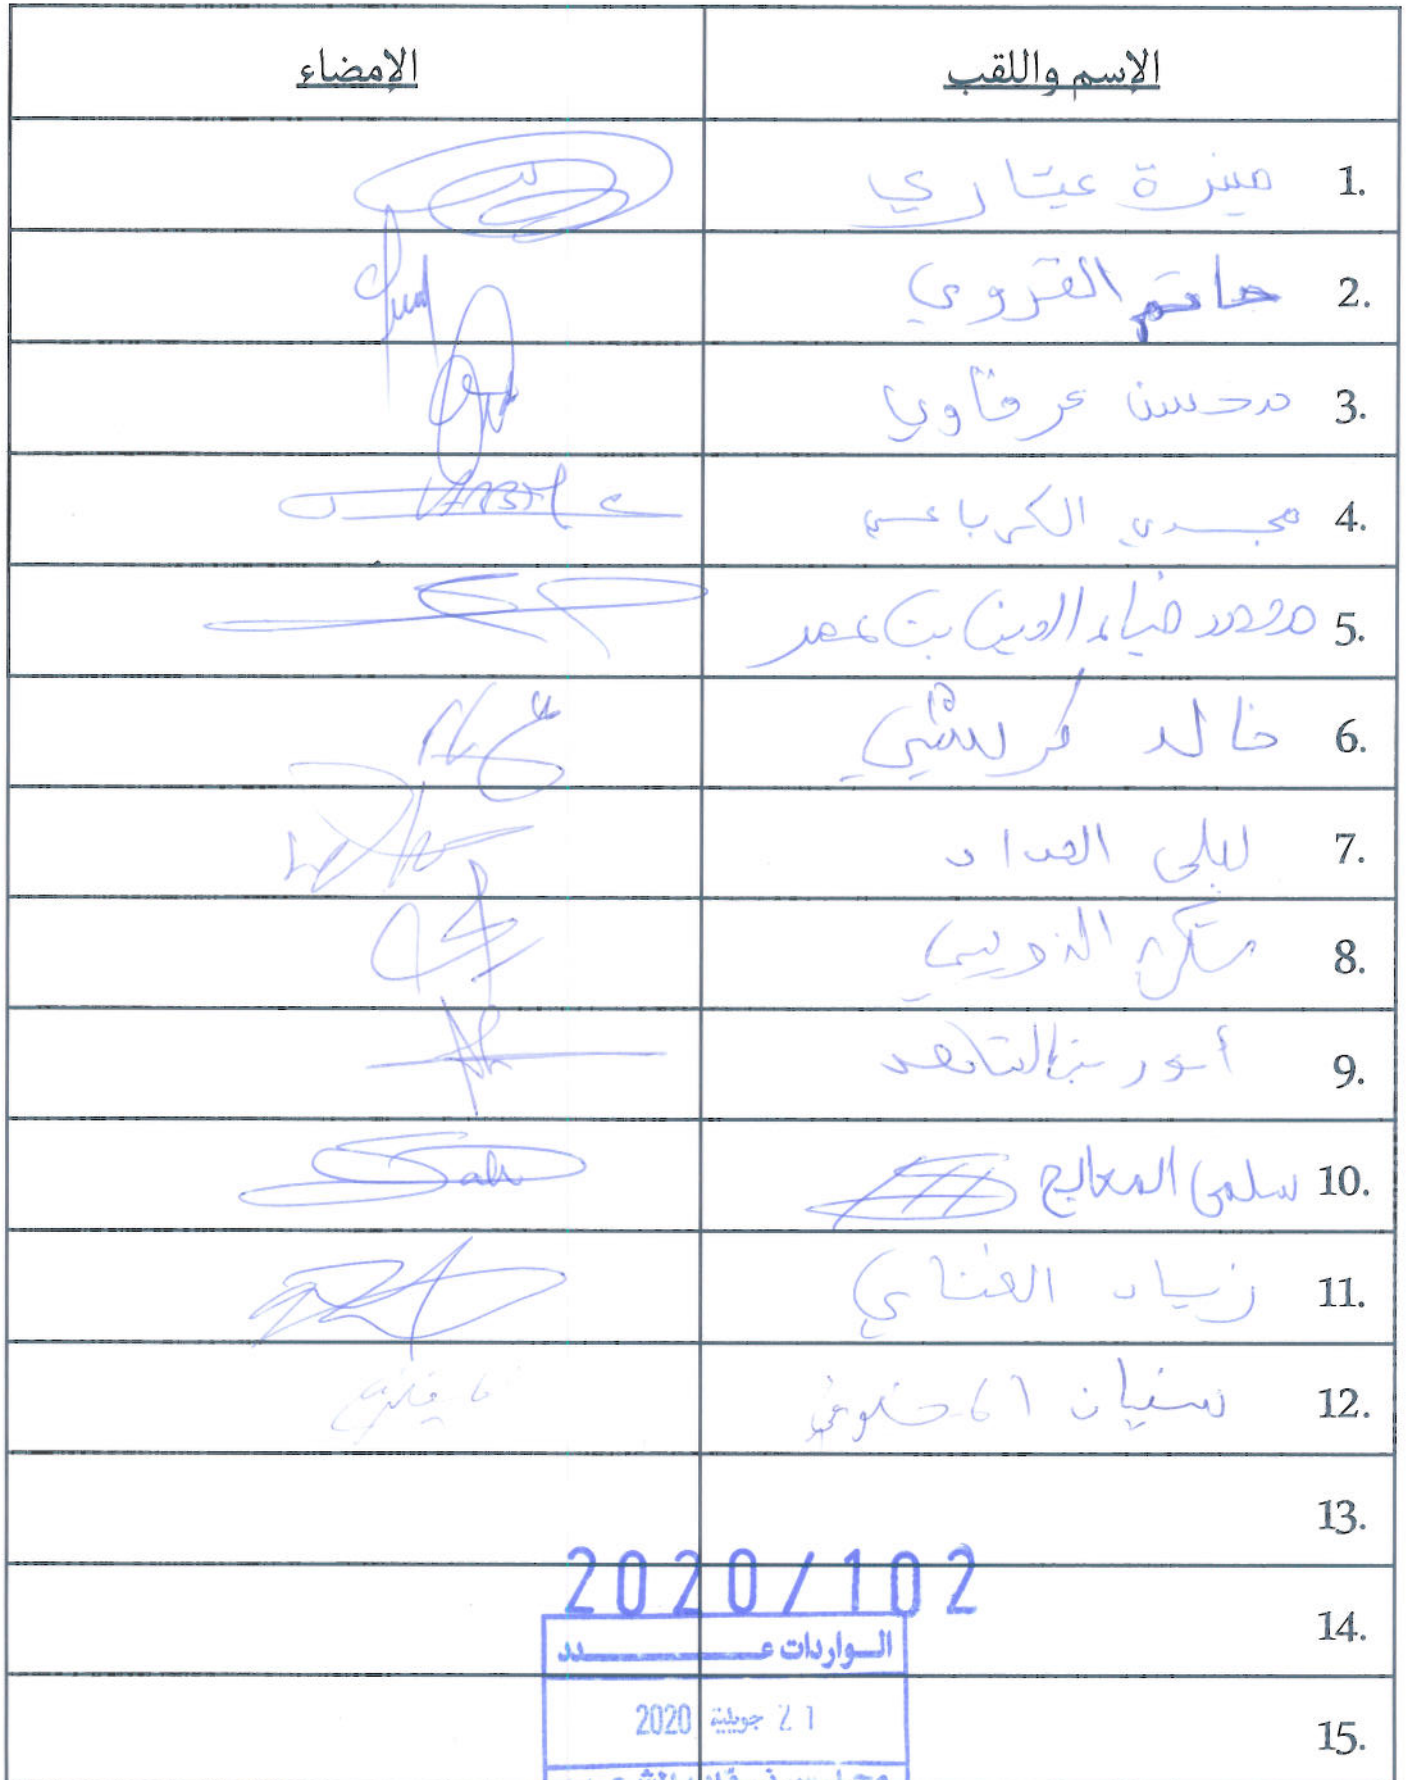 الإسم واللقب الإمضاء
1. منيرة عيّاري
2. حاتم القروي
3. محسن عرفاوي
4. مجدي الكرباعي
5. محمد ضياء الدين بن عمر
6. خالد كريشي
7. ليلى الحداد
8. شكري الذويبي
9. أنور بن الشاهد
10. سلمى المعالج
11. زياد الغناي
12. سفيان المخلوفي
13.
14.
15.
2020/102
الـواردات عـــــدد
21 جويلية 2020